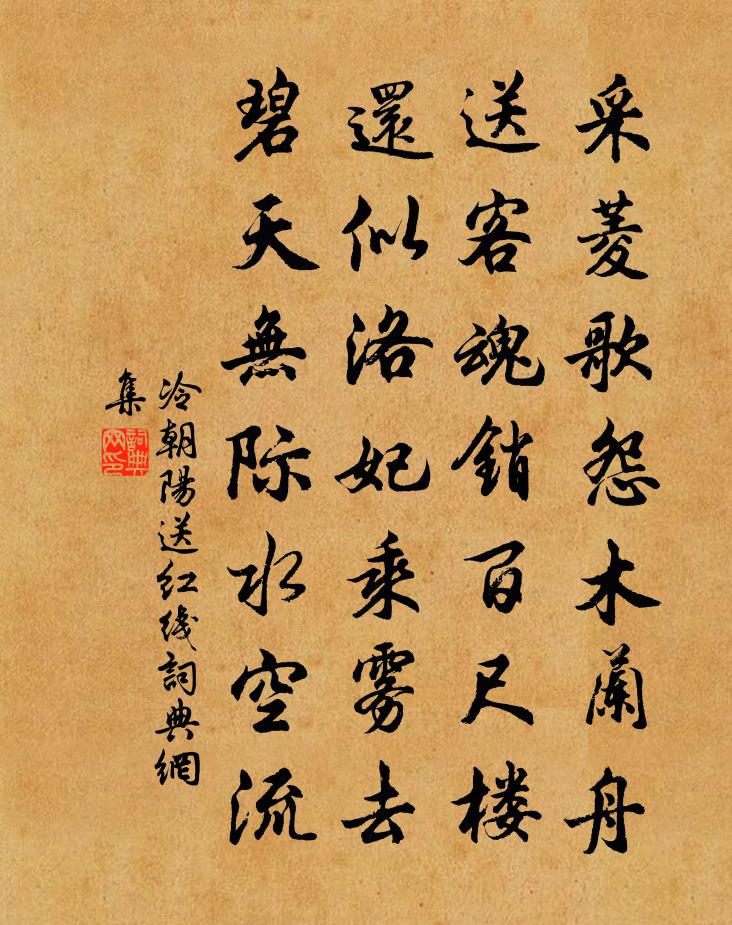 采菱歌怨木蘭舟
送客魂銷百尺楼
還似洛妃乘雾去
碧天無际水空流
冷朝陽送红线詞典網
集
詞典網印